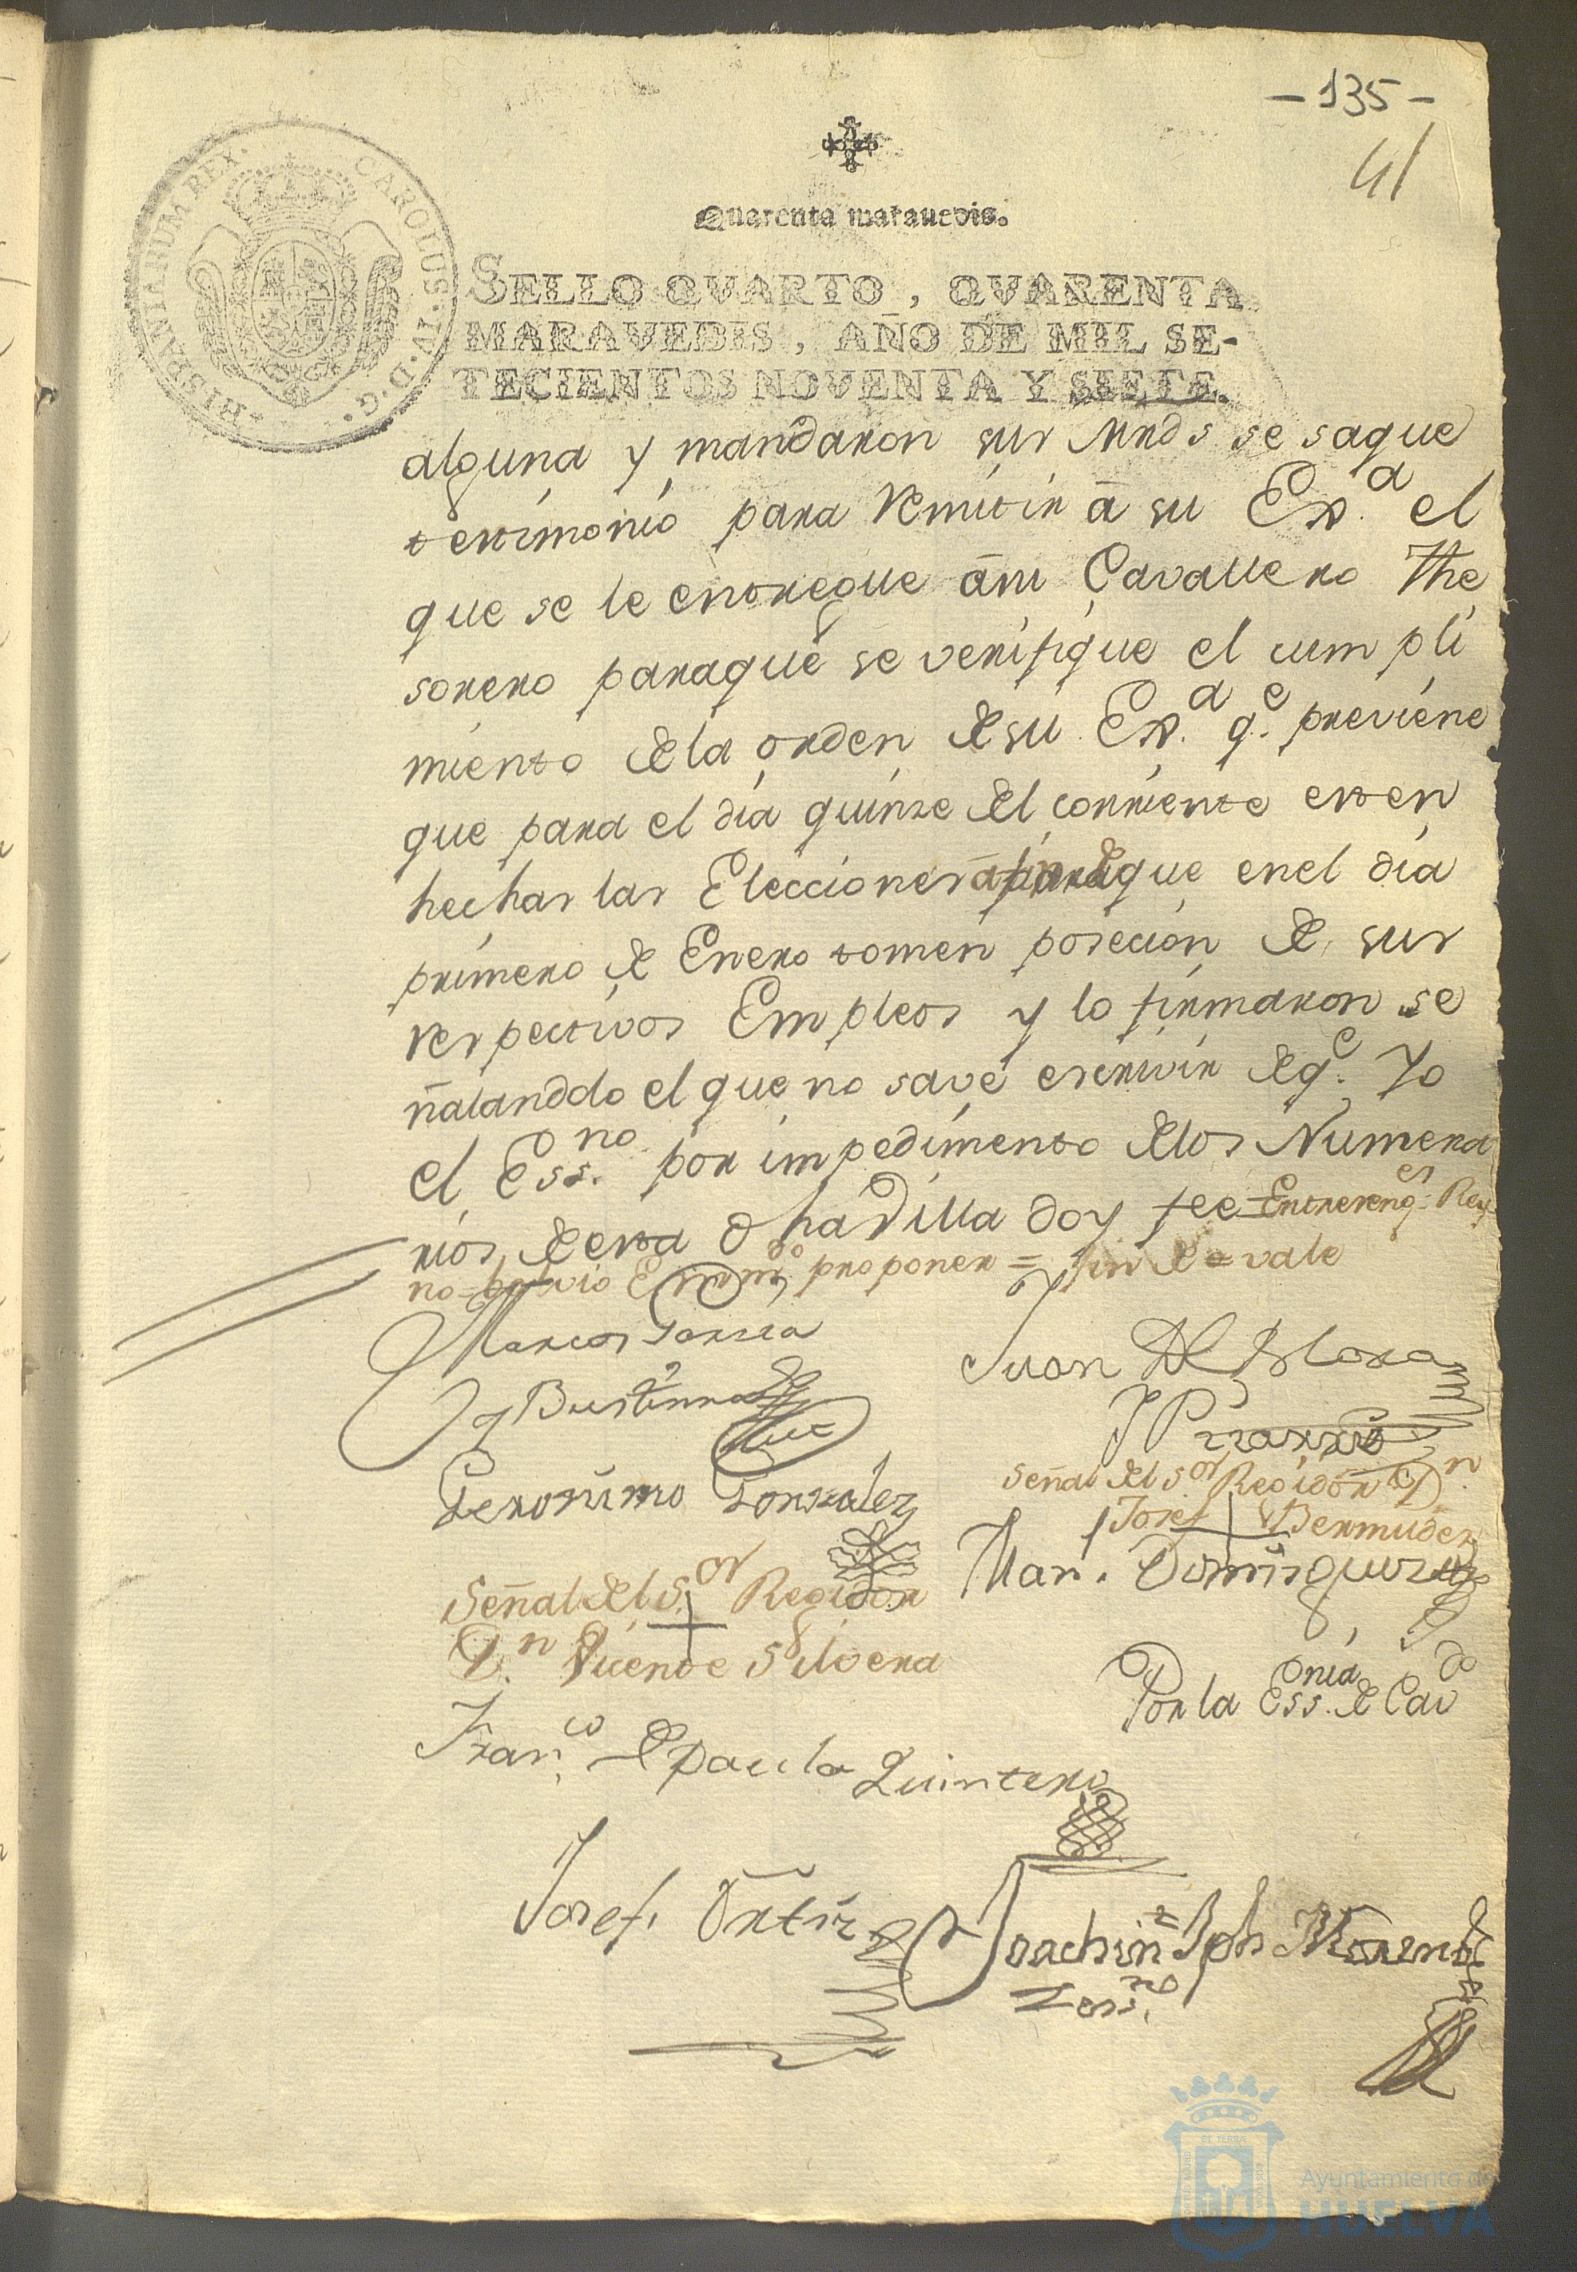 -135-
41
Quarenta maravedis.
HISPANIARUM REX. CAROLUS. IV. D. G.
SELLO QVARTO, QVARENTA
MARAVEDIS, AÑO DE MIL SE-
TECIENTOS NOVENTA Y SIETE.
alguna y mandaron sus Mrds se saque
testimonio para Remitir â su Exª. el
que se le entregue âm Cavallero The
sorero paraque se verifique el cumpli
miento dela orden de su Exª. qᵉ. previene
que para el dia quinse del corriente esten
hechas las Elecciones que enel dia
primero de Enero tomen posecion de sus
respectivos Empleos y lo firmaron se
ñalanddo el que no save escrivir deqᵉ. Yo
el Essⁿᵒ. por impedimento delos Numera
rios de esta dha Villa doy fee Entrerengᵉˢ. Rey
no proponer = fin de = vale
Marcos Garsia
y Bustinno
Juan De Mora
y Pizarro
Geronimo Gonzalez
Señal del Sᵒʳ Regidor Dⁿ.
Josef Bermudez
Man. Dominguez
Señal del S.ᵒʳ Regidor
Dⁿ. Vicente Silvera
Por la Essⁿⁱᵃ. de Cavᵈᵒ
Franᶜᵒ. de Paula Quintero
Josef Ortiz
Joachin Jph Moreno
Essⁿᵒ.
Ayuntamiento de
HUELVA